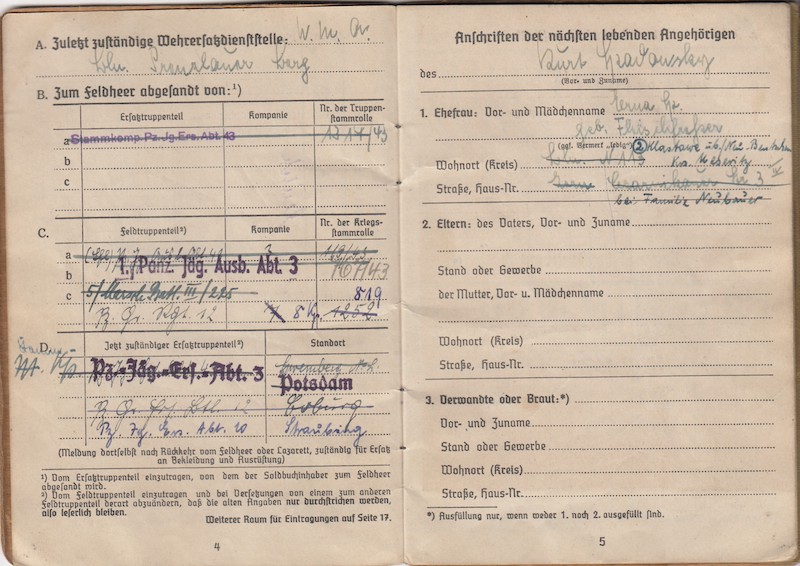 A. Zuletzt zuständige Wehrersatzdienststelle: W. M. A.
Bln. Prenzlauer Berg
B. Zum Feldheer abgesandt von:¹)
Ersatztruppenteil Kompanie Nr. der Truppenstammrolle
a Stammkomp.Pz.Jg.Ers.Abt. 43 1314/43
b
c
C. Feldtruppenteil²) Kompanie Nr. der Kriegsstammrolle
a
1./Panz. Jäg. Ausb. Abt. 3
b
c 819
Pz. Gr. Rgt. 12 8 Kp. 1252
D. Jetzt zuständiger Ersatztruppenteil²) Standort
Pz.-Jäg.-Ers.-Abt. 3 Potsdam
Pz. Gr. Ers. Btl. 12 Coburg
Pz. Jg. Ers. Abt. 10 Straubing
(Meldung dortselbst nach Rückkehr vom Feldheer oder Lazarett, zuständig für Ersatz
an Bekleidung und Ausrüstung)
¹) Vom Ersatztruppenteil einzutragen, von dem der Soldbuchinhaber zum Feldheer
abgesandt wird.
²) Vom Feldtruppenteil einzutragen und bei Versetzungen von einem zum anderen
Feldtruppenteil derart abzuändern, daß die alten Angaben nur durchstrichen werden,
also leserlich bleiben.
Weiterer Raum für Eintragungen auf Seite 17.
4
Anschriften der nächsten lebenden Angehörigen
des Kurt
(Vor- und Zuname)
1. Ehefrau: Vor- und Mädchenname Erna
geb.
(ggf. Vermerk „ledig")
Wohnort (Kreis) Bln. N 113 Krs. Meseritz
Straße, Haus-Nr.
bei Familie Neubauer
2. Eltern: des Vaters, Vor- und Zuname
Stand oder Gewerbe
der Mutter, Vor- u. Mädchenname
Wohnort (Kreis)
Straße, Haus-Nr.
3. Verwandte oder Braut:*)
Vor- und Zuname
Stand oder Gewerbe
Wohnort (Kreis)
Straße, Haus-Nr.
*) Ausfüllung nur, wenn weder 1. noch 2. ausgefüllt sind.
5